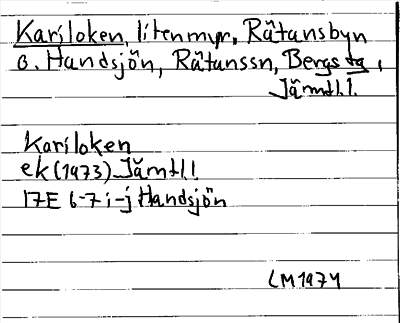 Kariloken, liten myr, Rätansbyn
o. Handsjön, Rätanssn, Bergs tg,
Jämtl.l.
Kariloken
ek (1973) Jämtl.l
17E 6-7 i-j Handsjön
LM 1974